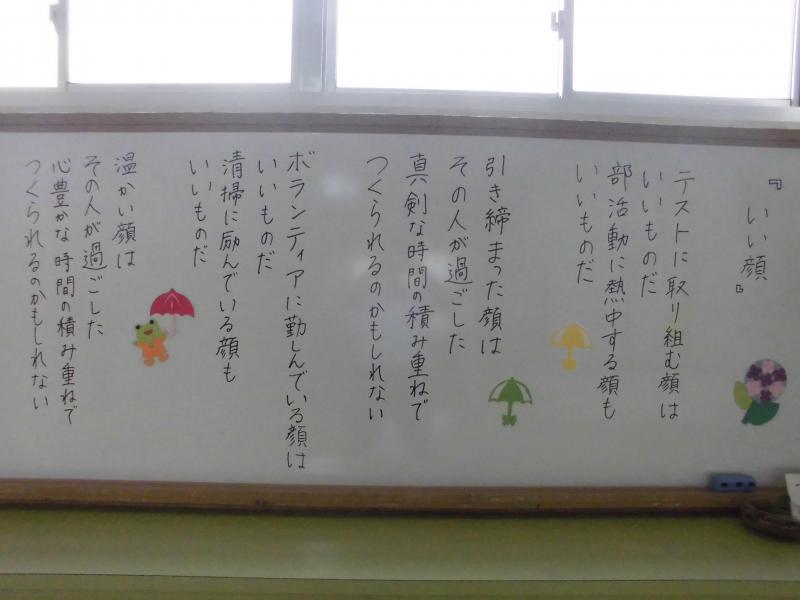 『いい顔』
テストに取り組む顔は
いいものだ
部活動に熱中する顔も
いいものだ
引き締まった顔は
その人が過ごした
真剣な時間の積み重ねで
つくられるのかもしれない
ボランティアに勤しんでいる顔は
いいものだ
清掃に励んでいる顔も
いいものだ
温かい顔は
その人が過ごした
心豊かな時間の積み重ねで
つくられるのかもしれない